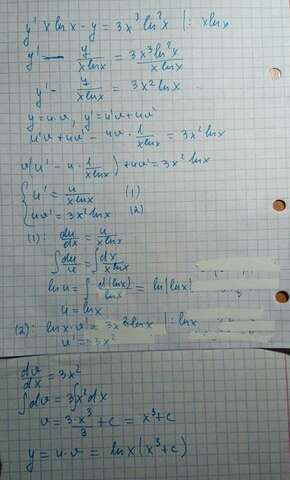 y' x lnx - y = 3x³ln²x |: xlnx
y' - y/(xlnx) = 3x³ln²x/(xlnx)
y' - y/(xlnx) = 3x² lnx
y = u·v, y' = u'v + uv'
u'v + uv' - uv · 1/(xlnx) = 3x² lnx
v(u' - u · 1/(xlnx)) + uv' = 3x² lnx
{ u' = u/(xlnx) (1)
uv' = 3x² lnx (2)
(1): du/dx = u/(xlnx)
∫ du/u = ∫ dx/(xlnx)
ln u = ∫ d(lnx)/lnx = ln|lnx|
u = lnx
(2): lnx · v' = 3x² lnx |: lnx
v' = 3x²
dv/dx = 3x²
∫dv = 3∫x²dx
v = 3·x³/3 + c = x³ + c
y = u·v = lnx(x³ + c)